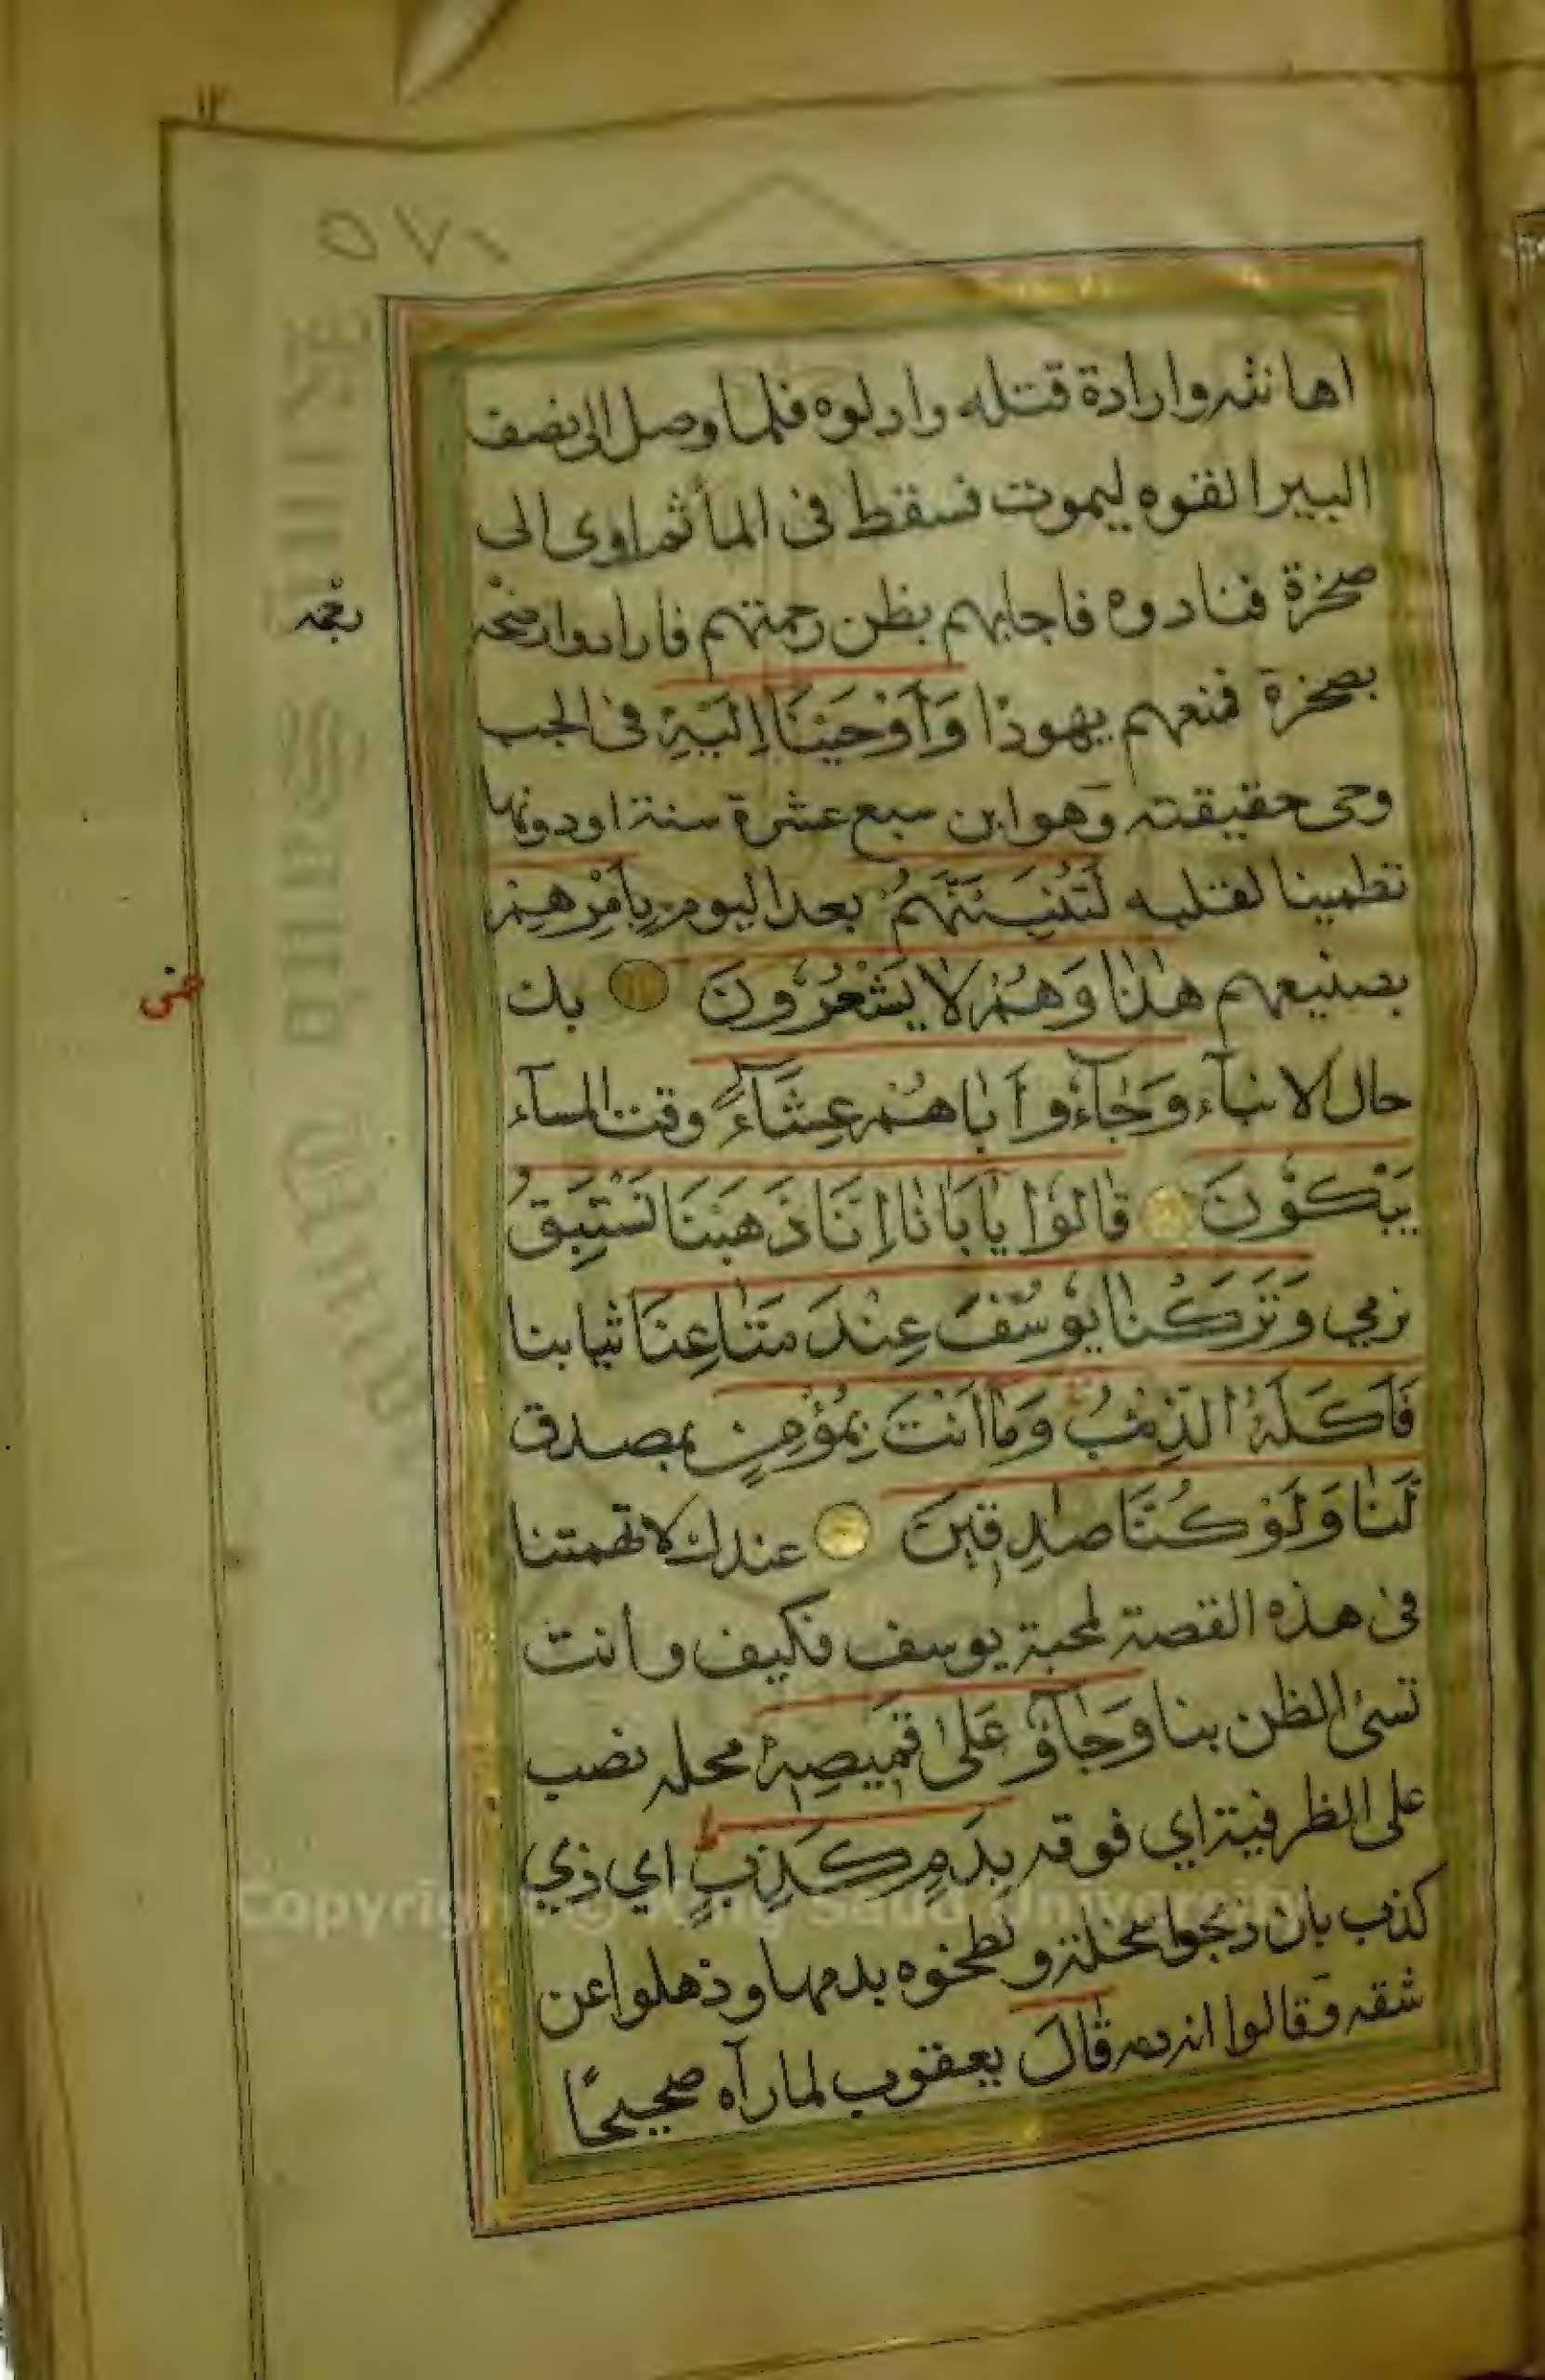 ١١
٥٧١
اهانته وارادة قتله وادلوه فلما وصل الى نصف
البير القوه ليموت فسقط فى المأ ثم اوى الى
صخرة فنادوه فاجابهم بظن رحمتهم فارادوا رضخه
بصخرة فمنعهم يهوذا وَأَوْحَيْنَا إِلَيْهِ فى الجب
وحى حقيقته وهو ابن سبع عشرة سنة او دونها
تطمينا لقلبه لَتُنَبِّئَنَّهُمْ بعد اليوم بِأَمْرِهِمْ
بصنيعهم هٰذَا وَهُمْ لَا يَشْعُرُونَ بك
حال الانباء وَجَآءُوٓ أَبَاهُمْ عِشَآءً وقت المسآء
يَبْكُونَ قَالُوا يَآبَانَا إِنَّا ذَهَبْنَا نَسْتَبِقُ
نرمي وَتَرَكْنَا يُوسُفَ عِنْدَ مَتَاعِنَا ثيابنا
فَأَكَلَهُ الذِّئْبُ وَمَآ أَنْتَ بِمُؤْمِنٍ بمصدق
لَنَا وَلَوْ كُنَّا صَادِقِينَ عندك لاتهمتنا
فى هذه القصة لمحبة يوسف فكيف وانت
تسئ الظن بنا وَجَآؤُ عَلَىٰ قَمِيصِهِ محله نصب
على الظرفية اي فوقه بِدَمٍ كَذِبٍ اي ذي
كذب بان ذبحوا سخلة ولطخوه بدمها وذهلوا عن
شقه وقالوا انه دمه قَالَ يعقوب لما رآه صحيحًا
Copyright © King Saud University